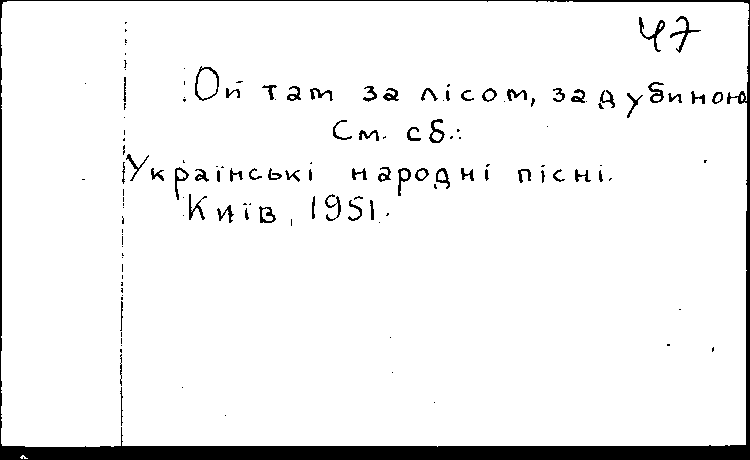 47
Ой там за лісом, за дубиною
См. сб.:
Українські народні пісні.
Київ, 1951.